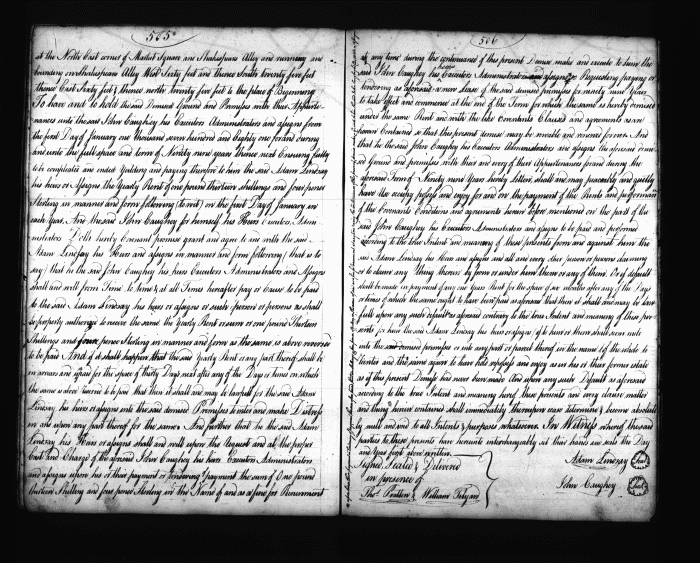 505
at the North East corner of Market Square and Shakespears Alley and running and
bounding on Shakespears Alley West Sixty feet and thence South twenty five feet
thence East Sixty feet & thence north Twenty five feet to the place of Beginning
To have and to hold the said Demised Ground and Premises with their Appurte-
nances unto the said John Caughey his Executors Administrators and assigns from
the first Day of January one thousand seven hundred and Eighty one for and during
and unto the full space and term of Ninety nine years thence next Ensuing fully
to be compleated and ended Yealding and paying therefor to him the said Adam Lindsay
his heirs or Assigns the Yearly Rent of one pound thirteen shillings and four pence
Sterling in manner and form following (to wit) on the first Day of January in
each Year. And the said John Caughey for himself his Heirs Executors, Admi
nistrators Doth hereby Covenant promise grant and agree to and with the said
Adam Lindsay his Heirs and assigns in manner and form following (that is to
say) that he the said John Caughey his heirs Executors Administrators and Assigns
shall and will from Time to time & at all Times hereafter pay or Cause to be paid
to the said Adam Lindsay his heirs or assigns or such person or persons as shall
be properly authorized to receive the same the Yearly Rent or sum of one pound Thirteen
Shillings and four pence Sterling in manner and form as the same is above reserved
to be paid. And if it shall happen that the said Yearly Rent or any part thereof shall be
in arrears and unpaid for the space of thirty Days next after any of the Days or times on which
the same is above reserved to be paid that then it shall and may be lawfull for the said Adam
Lindsay his heirs or assigns into the said demised Premises to enter and make Distress
for and upon any part thereof for the same. And further that he the said Adam
Lindsay his Heirs or assigns shall and will upon the Request and at the proper
Cost and Charge of the aforesaid John Caughey his heirs Executors Administrators
and assigns upon his or their payment or tendering payment the sum of One pound
thirteen Shilling and four pence Sterling in the Name of and as a fine for Renewment
506
at any time during the continuance of this present Demise make and execute to him the
said John Caughey his Executors Administrators and assigns Requesting paying or
tendering as aforesaid a new Lease of the said demised premises for ninety nine Years
to take effect and commence at the end of the Term for which the same is hereby demised
under the same Rent and with the like Covenants Clauses and agreements as are
herein Contained so that this present demise may be renewable and renewed forever. And
that he the said John Caughey his Executors Administrators and Assigns the aforesaid demis
ed Ground and premises with their and every of their Appurtenances for and during the
aforesaid Term of Ninety nine Years hereby Letten shall and may peaceably and quietly
have Use occupy possess and enjoy for and on the payment of the Rents and performance
of the Covenants Conditions and agreements herein before mentioned on the part of the
said John Caughey his Executors Administrators and assigns to be paid and performed
according to the true Intent and meaning of these presents from and against him the
said Adam Lindsay his Heirs and assigns and all and every other person or persons claiming
or to claim any Thing therein by from or under him them or any of them. Or if default
shall be made in payment of any one Years Rent for the space of six months after any of the Days
or times of which the same ought to have been paid as aforesaid that then it shall and may be law
full upon any such default as aforesaid contrary to the true Intent and meaning of these pre-
sents for him the said Adam Lindsay his heirs or assigns to
into the said demised premises or into any part or parcel thereof in the name of the whole to
Reenter and the same again to have hold repossess and enjoy as in his or their former estate
as if this present Demise had never been made. And upon any such Default as aforesaid
according to the true Intent and meaning hereof these presents and every clause matter
and thing herein contained shall immediately thereupon cease determine & become absolute
ly null and void to all Intents & purposes whatsoever. In Witness whereof the said
parties to these presents have hereunto interchangeably set their hands and seals the Day
and Year first above written.
Signed Sealed & Delivered
in presence of
William
Adam Lindsay Seal
John Caughey Seal